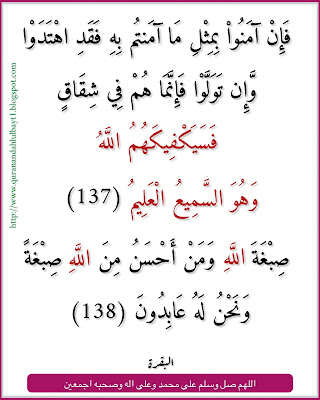 فَإِنْ آمَنُواْ بِمِثْلِ مَا آمَنتُم بِهِ فَقَدِ اهْتَدَوْا
وَّإِن تَوَلَّوْا فَإِنَّمَا هُمْ فِي شِقَاقٍ
فَسَيَكْفِيكَهُمُ اللَّهُ
وَهُوَ السَّمِيعُ الْعَلِيمُ (137)
صِبْغَةَ اللَّهِ وَمَنْ أَحْسَنُ مِنَ اللَّهِ صِبْغَةً
وَنَحْنُ لَهُ عَابِدُونَ (138)
البقرة
اللهم صل وسلم على محمد وعلى اله وصحبه اجمعين
http://www.quranandahlulbayt1.blogspot.com